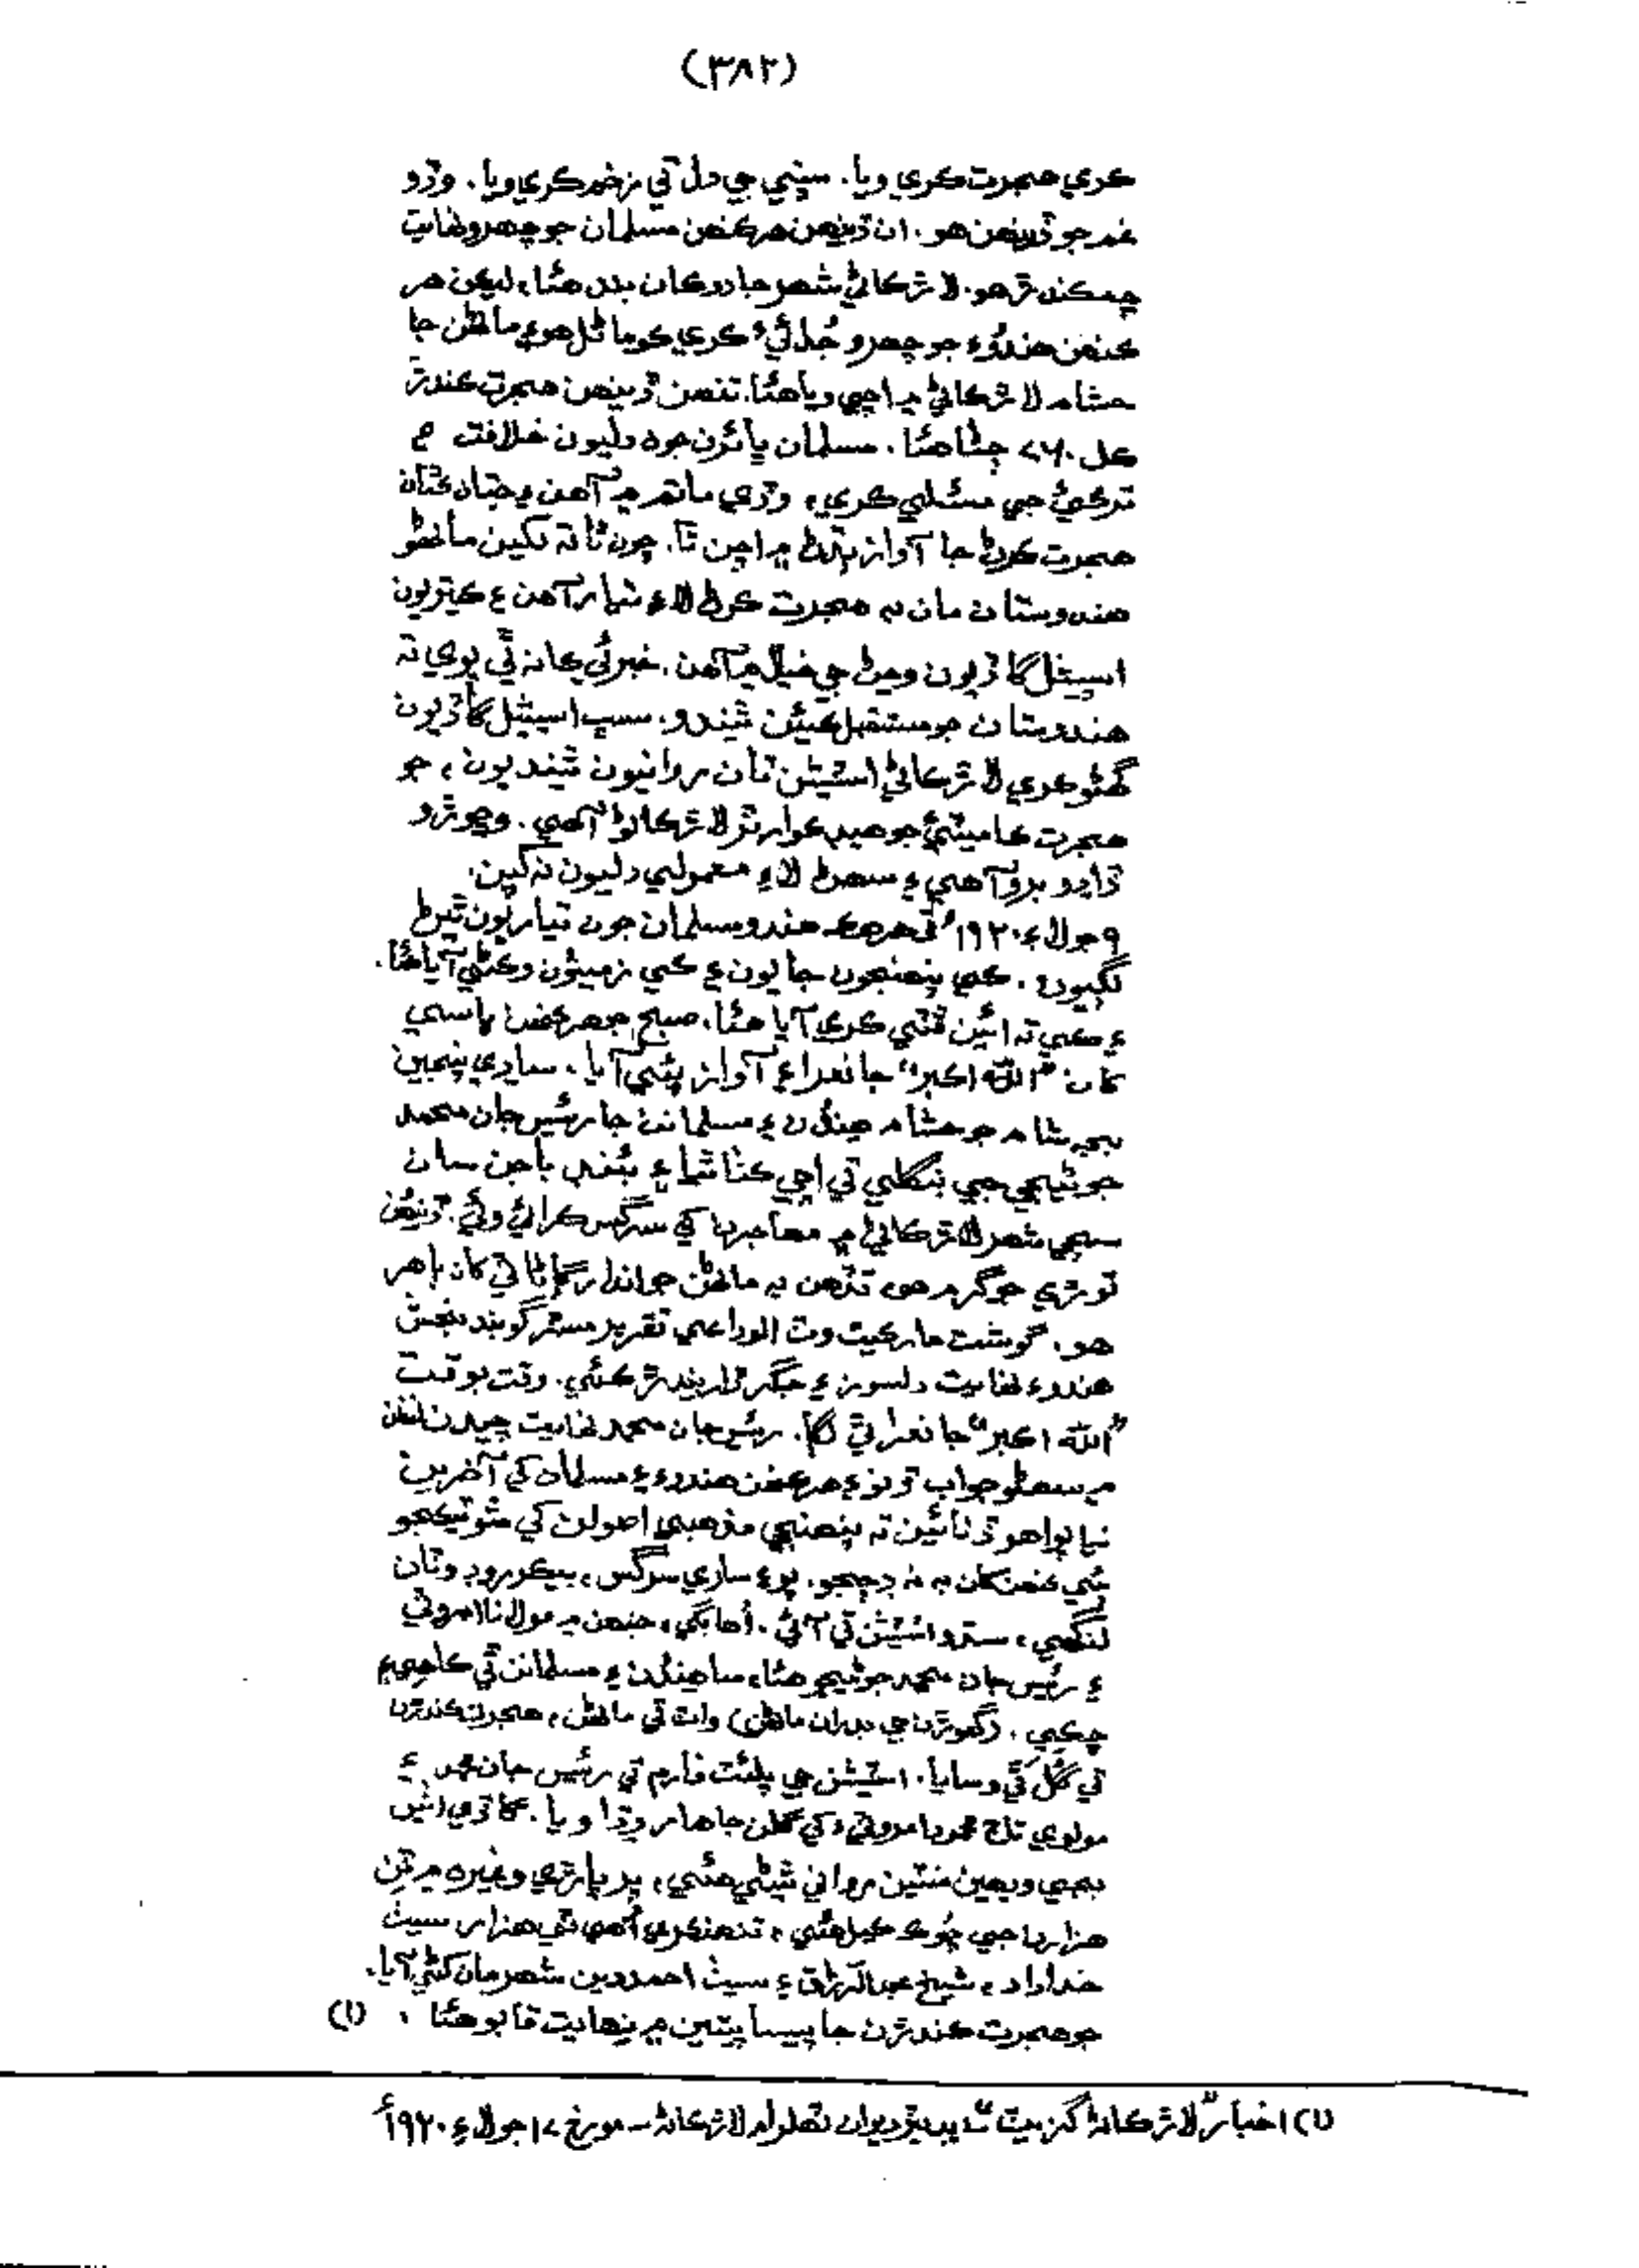 (٣٨٢)
ڪري هجرت ڪري ويا. سڀني جي دل تي زخم ڪري ويا. وڏو
غم جو ڏينهن هو. ان ڏينهن هر ڪنهن مسلمان جو چهرو نهايت
چمڪندڙ هو. لاڙڪاڻي شهر جا دوڪان بند هئا، ليڪن هر
ڪنهن هندوءَ جو چهرو جدائيءَ ڪري ڪوماڻل هو ۽ ماڻهن جا
حشام لاڙڪاڻي ۾ اچي ويا هئا. تنهن ڏينهن هجرت ڪندڙ
ڪل ٧٦٠ ڄڻا هئا. مسلمان ڀائرن جون دليون خلافت ۽
ترڪيءَ جي مسئلي ڪري، وڏي ماتم ۾ آهن ۽ جتان ڪٿان
هجرت ڪرڻ جا آواز ٻڌڻ ۾ اچن ٿا. چون ٿا ته لکين ماڻهو
هندوستان مان به هجرت ڪرڻ لاءِ تيار آهن ۽ ڪيتريون
اسپيشل گاڏيون وڃڻ جي خيال ۾ آهن. خبر ئي ڪانه ٿي پوي ته
هندوستان جو مستقبل ڪيئن ٿيندو. سڀ اسپيشل گاڏيون
گھڻو ڪري لاڙڪاڻي اسٽيشن تان روانيون ٿينديون، جو
هجرت ڪاميٽيءَ جو هيڊ ڪوارٽر لاڙڪاڻو آهي. وڇوڙو
ڏاڍو برو آهي ۽ سهڻ لاءِ معمولي دليون نه کپن.
٩ جولاءِ ١٩٢٠ع تي هرهڪ هندو مسلمان جون تياريون ٿيڻ
لڳيون. ڪي پنهنجون جايون ۽ ڪي زمينون وڪڻي آيا هئا.
۽ ڪي ته ائين ڦٽي ڪري آيا هئا. صبح جو هر ڪنهن پاسي
کان "الله اڪبر" جا نعرا ۽ آواز پئي آيا. ساڍي پنجين
بجي شام جو حشام هندن ۽ مسلمانن جا رئيس جان محمد
جوڻيجي جي بنگلي تي اچي ڪٺا ٿيا ۽ بئنڊ باجن سان
سڄي شهر لاڙڪاڻي ۾ مهاجرن کي سرگس ڪرائي وئي. ڏينهن
توڙي جو گرم هو، تڏهن به ماڻهن جو انداز ڳاڻاٽي کان ٻاهر
هو. گوشت مارڪيٽ وٽ الوداعي تقرير مسٽر گوبند بخش
هندوءَ نهايت دلسوز ۽ جگر ڏاريندڙ ڪئي. وقت بوقت
"الله اڪبر" جا نعرا ٿي لڳا. رئيس جان محمد نهايت چيدن لفظن
۾ سهڻو جواب ڏنو ۽ هر ڪنهن هندوءَ ۽ مسلمان کي آخرين
نياپو اهو ڏنائين ته پنهنجي مذهبي اصولن کي مٿو ٽيڪجو
ٻي ڪنهن کان به نه ڊڄجو. پوءِ ساري سرگس، بيڪر روڊ وٽان
لنگهي، سڌو اسٽيشن تي آئي. اُها بگي، جنهن ۾ مولانا امروٽي
۽ رئيس جان محمد جوڻيجو هئا، سا هندن ۽ مسلمانن ٿي ڪاهي ۽
ڇڪي. (گھوڙن جي بدران ماڻهن) واٽ تي ماڻهن، هجرت ڪندڙن
تي گل ٿي وسايا. اسٽيشن جي پليٽ فارم تي رئيس جان محمد ۽
مولوي تاج محمود امروٽيءَ کي گلن جا هار وڌا ويا. گاڏي اٺين
بجي ويهين منٽين رواني ٿيڻي هئي، پر ڀاڙي وغيره ۾ ٽن
هزارن جي چُوڪ پيل هئي، تنهنڪري اُهي ٽي هزار سيٺ
خداداد، شيخ عبدالرزاق ۽ سيٺ احمد دين شهر مان کڻي آيا.
جو هجرت ڪندڙن جا پيسا پيتين ۾ نهايت قابو هئا. (١)
(١) اخبار "لاڙڪاڻا گزيٽ" ايڊيٽر ديوان لاڙڪاڻه – مورخ ١٧ جولاءِ ١٩٢٠ع